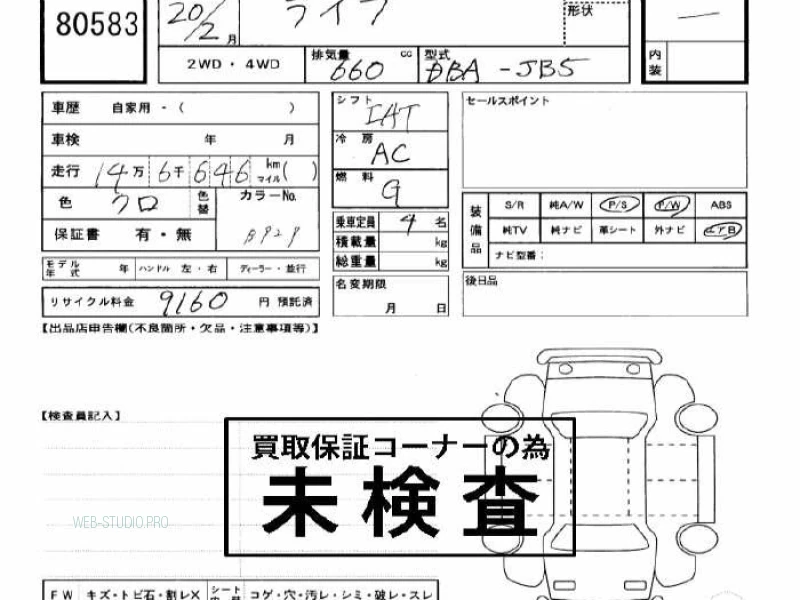 80583
20/2 月
ライフ
形状
2WD・4WD
排気量 660 cc
型式 DBA-JB5
内装
車歴 自家用・( )
車検 年 月
走行 14万 6千 646 km マイル( )
色 クロ 色替
カラーNo. B92P
保証書 有・無
シフト IAT
冷房 AC
燃料 G
乗車定員 4 名
積載量 kg
総重量 kg
セールスポイント
装備品
S/R 純A/W P/S P/W ABS
純TV 純ナビ 革シート 外ナビ エアB
ナビ型番:
モデル年式 年 ハンドル 左・右 ディーラー・並行
名変期限 月 日
後日品
リサイクル料金 9160 円 預託済
【出品店申告欄(不良箇所・欠品・注意事項等)】
【検査員記入】
買取保証コーナーの為
未検査
WEB-STUDIO.PRO
FW キズ・トビ石・割レX シート コゲ・穴・汚レ・シミ・破レ・スレ